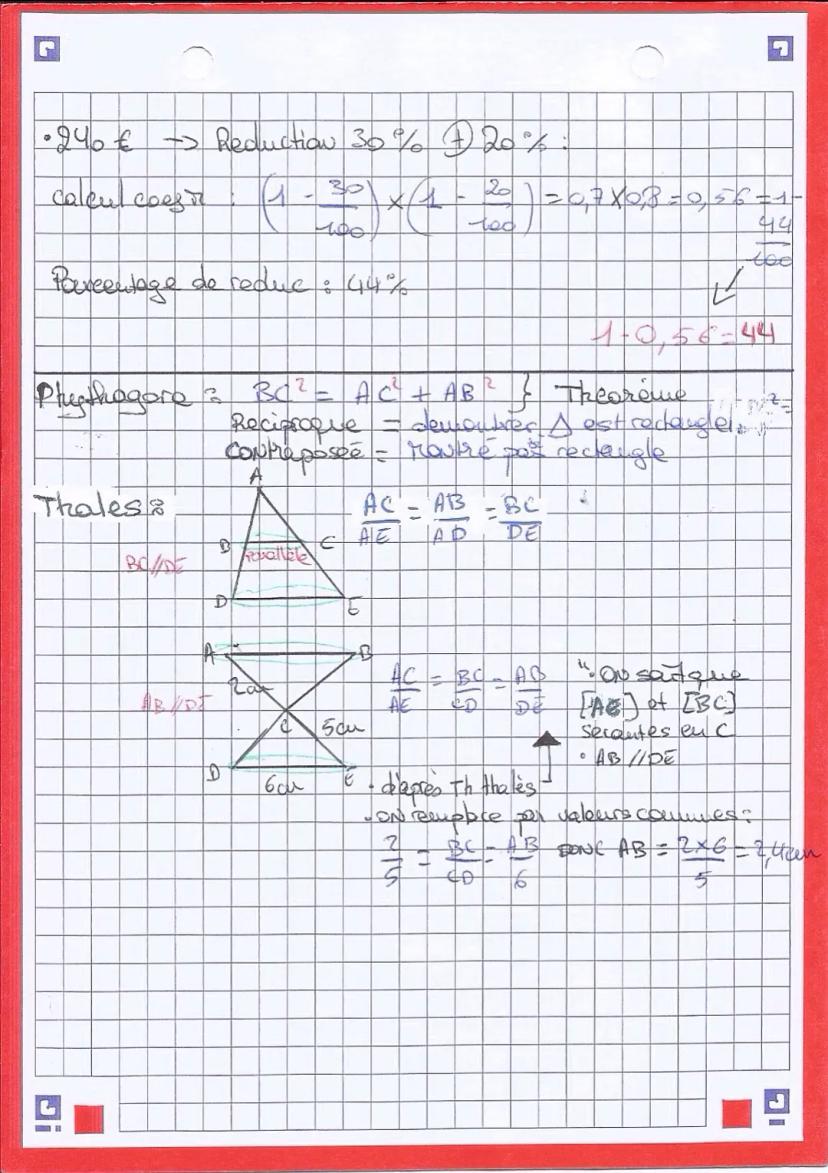 • 240 € → Reduction 30% ⊕ 20% :
calcul coeff : (1 - 30/100) × (1 - 20/100) = 0,7 × 0,8 = 0,56 = 1 - 44/100
Pourcentage de reduc : 44%
1 - 0,56 = 44
Phythagore : BC² = AC² + AB² } Théorème
Reciproque = demontrer Δ est rectangle.
Contreposeé = montre pas rectangle
Thales :
A
AC/AE = AB/AD = BC/DE
B C
parallèle
BC//DE
D E
A B
AC/AE = BC/CD = AB/DE
"• On sait que
2cm
[AE] et [BC]
AB//DE
C 5cm
secantes en C
• AB//DE
D E
6cm
• d'après Th thalès
• on remplace par valeurs connues :
2/5 = BC/CD = AB/6 DONC AB = 2×6/5 = 2,4cm